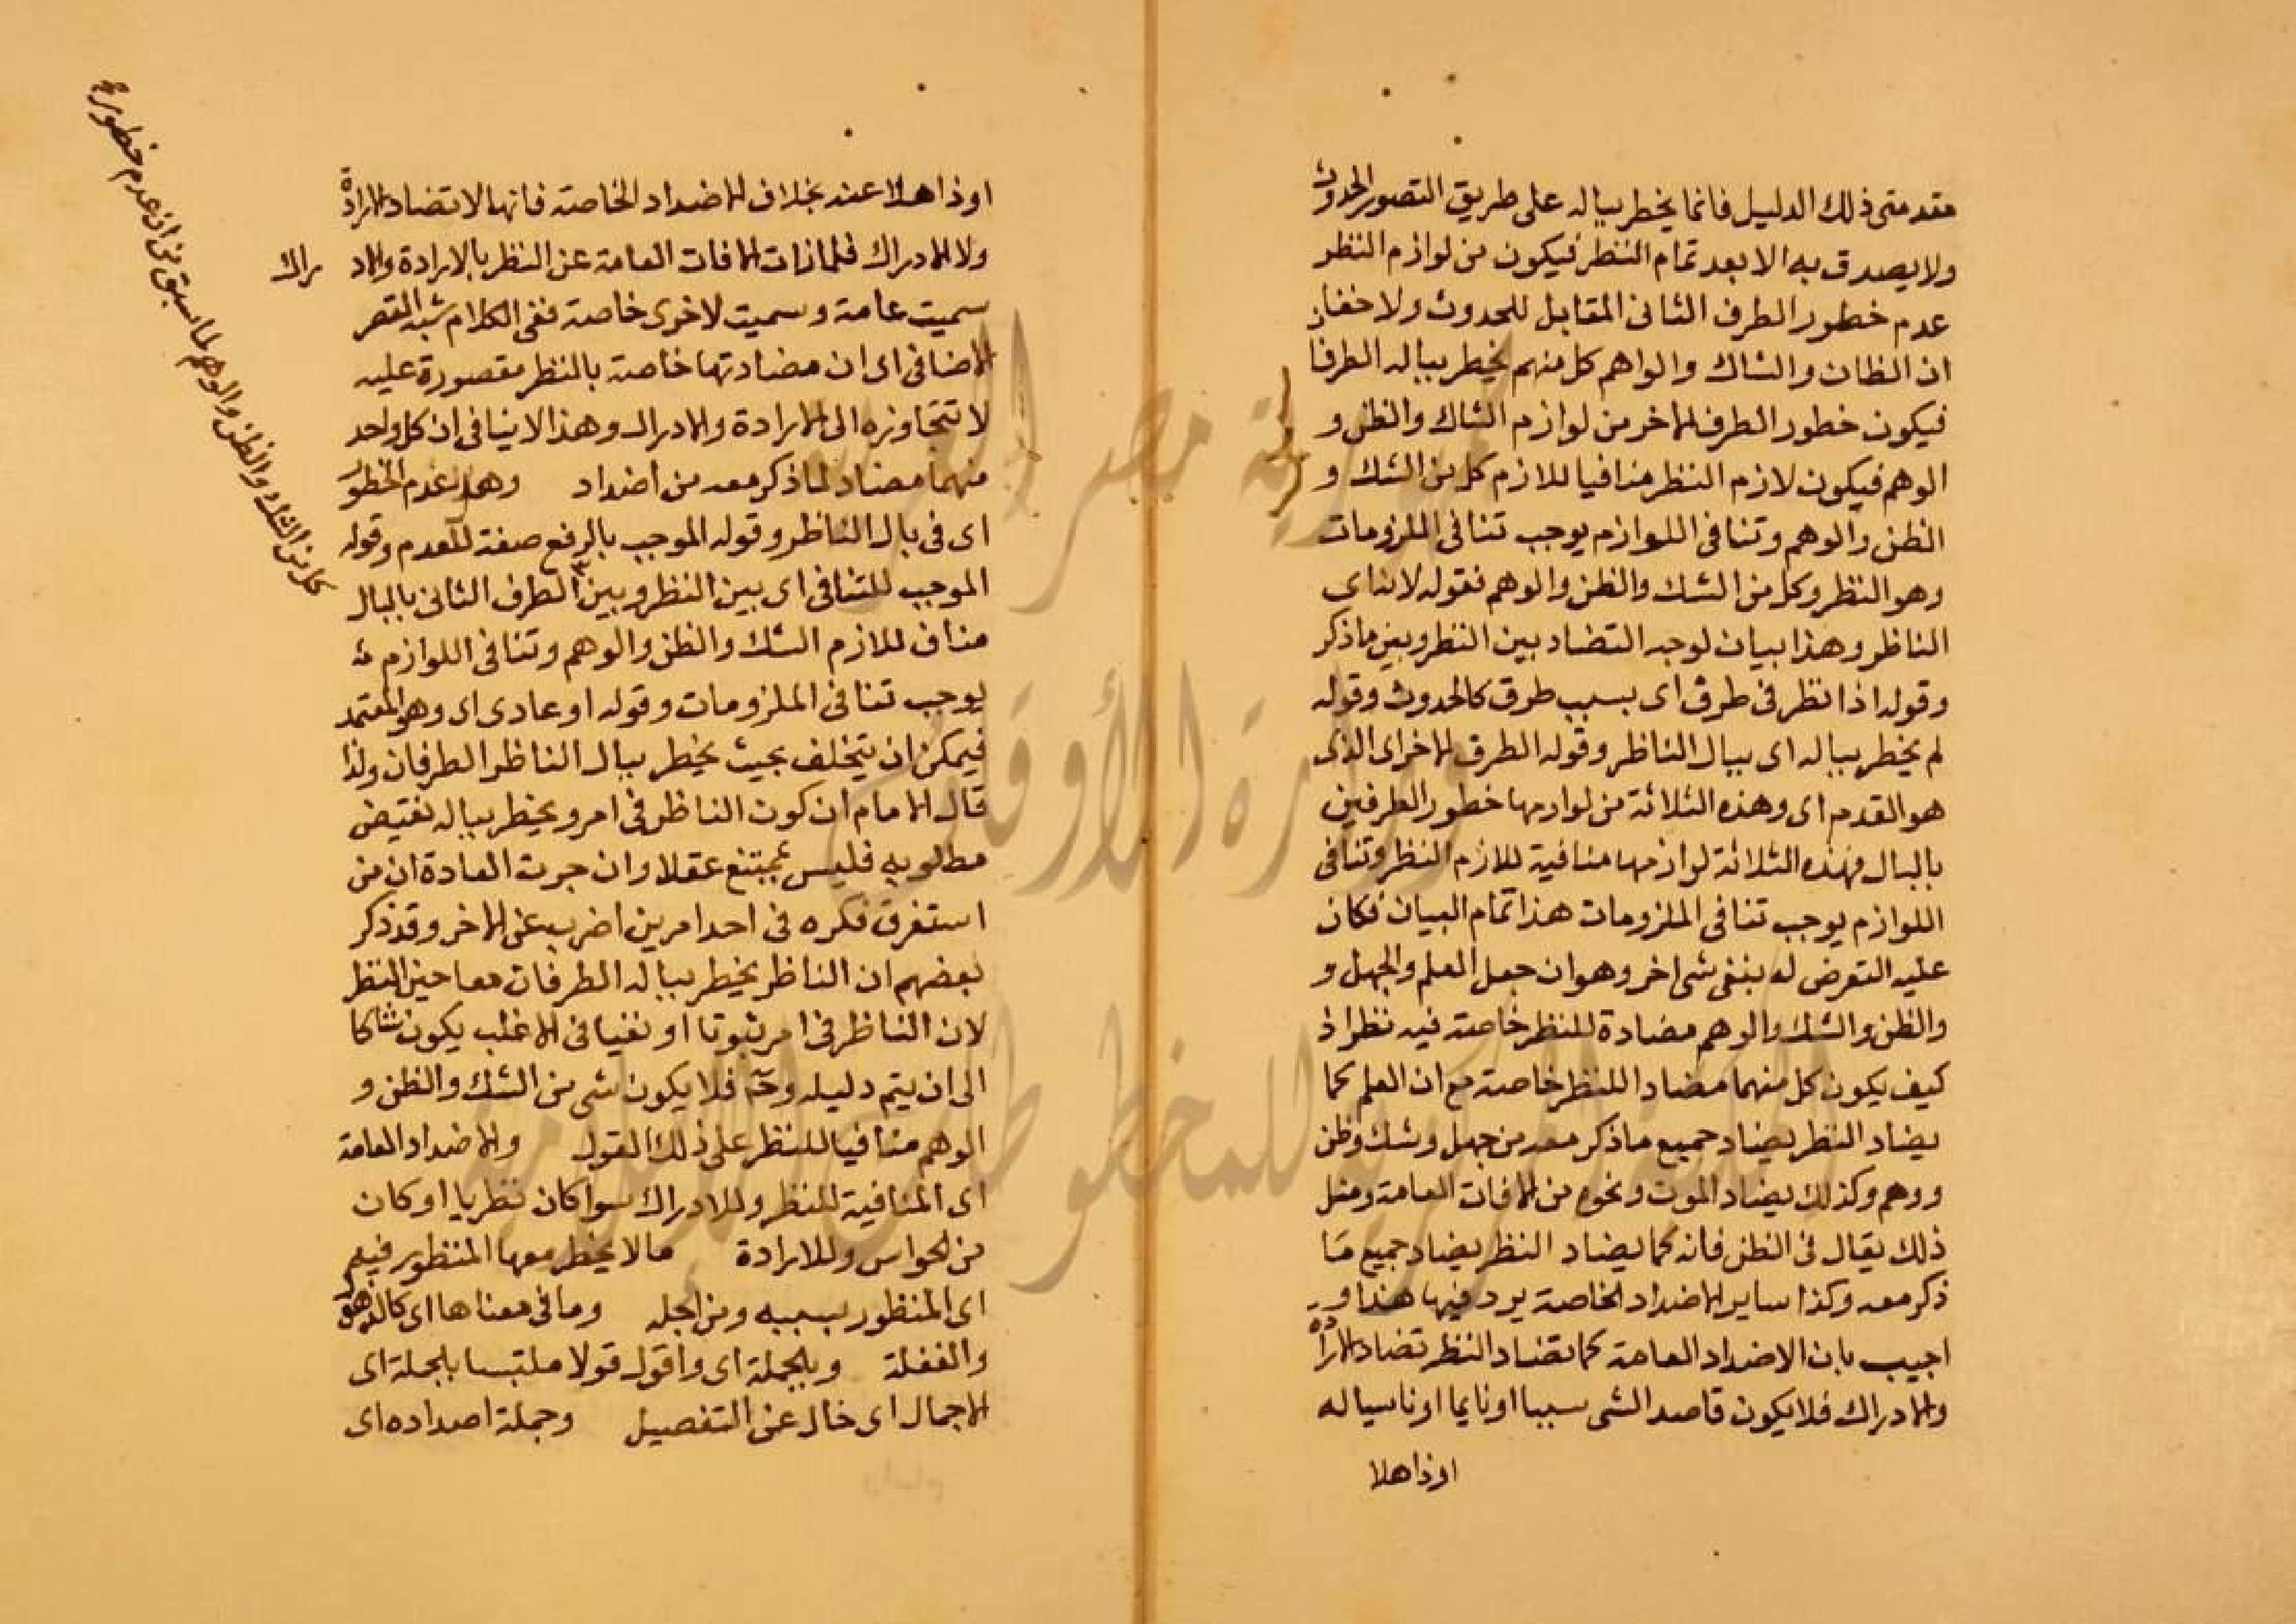 مقدمتى ذلك الدليل فانما يخطر بباله على طريق التصور الحدوث
ولا يصدق به الا بعد تمام النظر فيكون من لوازم النظر
عدم خطور الطرف الثانى المقابل للحدوث ولا خفا
ان الظان والشاك والواهم كل منهم يخطر بباله الطرفا
فيكون خطور الطرف الاخر من لوازم الشاك والظن و
الوهم فيكون لازم النظر منافيا للازم كل من الشك و
الظن والوهم وتنافى اللوازم يوجب تنافى الملزومات
وهو النظر وكل من الشك والظن والوهم فقوله لانه اى
الناظر وهذا بيان لوجه التضاد بين النظر وبين ما ذكر
وقوله اذا نظر فى طرف اى بسبب طرف كالحدوث وقوله
لم يخطر بباله اى ببال الناظر وقوله الطرف الاخر اى الذى
هو القدم اى وهذه الثلاثة من لوازمها خطور الطرفين
بالبال فهذه الثلاثة لوازمها منافية للازم النظر وتنافى
اللوازم يوجب تنافى الملزومات هذا تمام البيان فكان
عليه التعرض له بنفى شى اخر وهو ان جعل العلم والجهل و
والظن والشك والوهم مضادة للنظر خاصة فيه نظر اذ
كيف يكون كل منهما مضادا للنظر خاصة مع ان العلم كما
يضاد النظر يضاد جميع ما ذكر معه من جهل وشك وظن
ووهم وكذلك يضاد الموت ونحوه من الافات العامة ومثل
ذلك يقال فى الظن فانه كما يضاد النظر يضاد جميع ما
ذكر معه وكذا ساير الاضداد الخاصة يرد فيها هذا و
اجيب بان الاضداد العامة كما تضاد النظر تضاد الارادة
والادراك فلا يكون قاصد الشى سببا او نايما او ناسيا له
او ذاهلا
او ذاهلا عنه بخلاف الاضداد الخاصة فانها لا تضاد الارادة
ولا الادراك فلما زات الافات العامة عن النظر بالارادة والاد راك
سميت عامة وسميت لاخرى خاصة ففى الكلام شبه القصر
الاضافى اى ان مضادتها خاصة بالنظر مقصورة عليه
لا تتجاوزه الى الارادة والادراك وهذا لا ينافى ان كل واحد
منهما مضاد لما ذكر معه من اضداد وهذا عدم الخطور
اى فى بال الناظر وقوله الموجب بالرفع صفة للعدم وقوله
الموجب للتنافى اى بين النظر وبين الطرف الثانى بالبال
كل من الشك والظن والوهم لما سبق من ان عدم خطور
مناف للازم الشك والظن والوهم وتنافى اللوازم
يوجب تنافى الملزومات وقوله او عادى اى وهو المعتمد
فيمكن ان يتخلف بحيث يخطر ببال الناظر الطرفان ولذا
قال الامام ان كون الناظر فى امر ويخطر بباله نقيض
مطلوبه فليس بممتنع عقلا وان جرت العادة ان من
استغرق فكره فى احد امرين اضرب عن الاخر وقد ذكر
بعضهم ان الناظر يخطر بباله الطرفان معا حين النظر
لان الناظر فى امر ثبوتا او نفيا فى الاغلب يكون شاكا
الى ان يتم دليله وح فلا يكون شى من الشك والظن و
الوهم منافيا للنظر على ذلك القول والاضداد العامة
اى المنافية للنظر وللادراك سوا كان نظريا او كان
من الحواس وللارادة ما لا يخطر معها المنظور فيه
اى المنظور بسببه ومن اجله وما فى معناها اى كالذهو
والغفلة وبالجملة اى واقول قولا ملتبسا بالجملة اى
الاجمال اى خال عن التفصيل وجملة اضداده اى